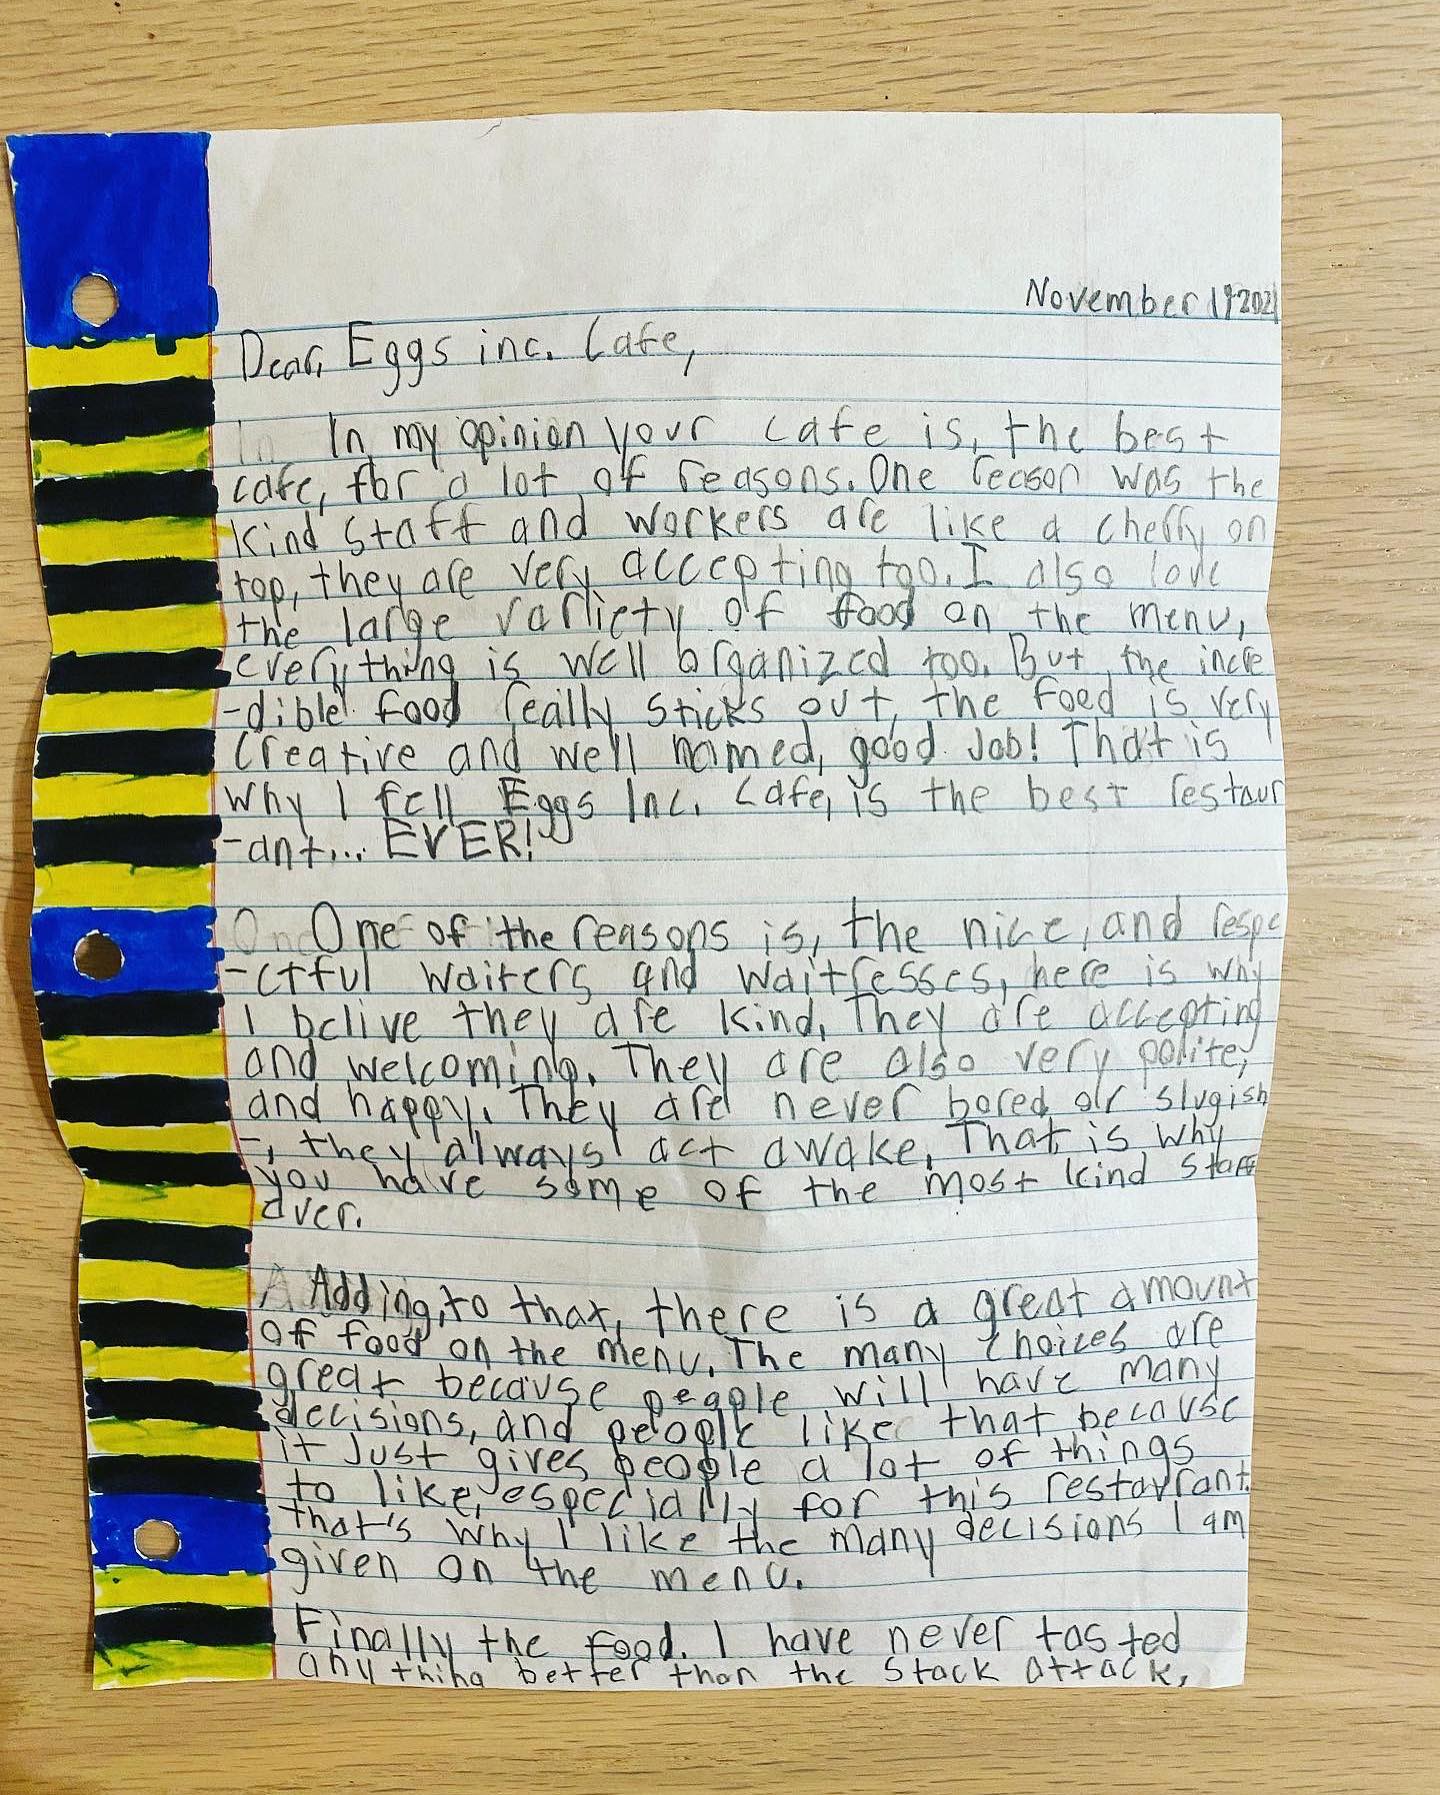 November 19 2021
Dear, Eggs inc. Cafe,
In my opinion your cafe is, the best
cafe, for a lot of reasons. One reason was the
kind staff and workers are like a cherry on
top, they are very accepting too. I also love
the large varliety of food on the menu,
everything is well organized too. But the incre
-dible food really sticks out, the food is very
creative and well named, good Job! That is
why I fell Eggs Inc. Cafe, is the best restaur
-ant... EVER!
One of the reasons is, the nice, and respe
-ctful waiters and waitresses, here is why
I belive they are kind. They are accepting
and welcoming. They are also very polite,
and happy. They are never bored or slugish
-, they always act awake. That is why
you have some of the most kind staff
aver.
Adding, to that, there is a great amount
of food on the menu. The many choices are
great because people will have many
decisions, and people like that because
it just gives people a lot of things
to like, especially for this restaurant.
that's why I like the many decisions I am
given on the menu.
Finally the food. I have never tasted
any thing better than the stack attack,